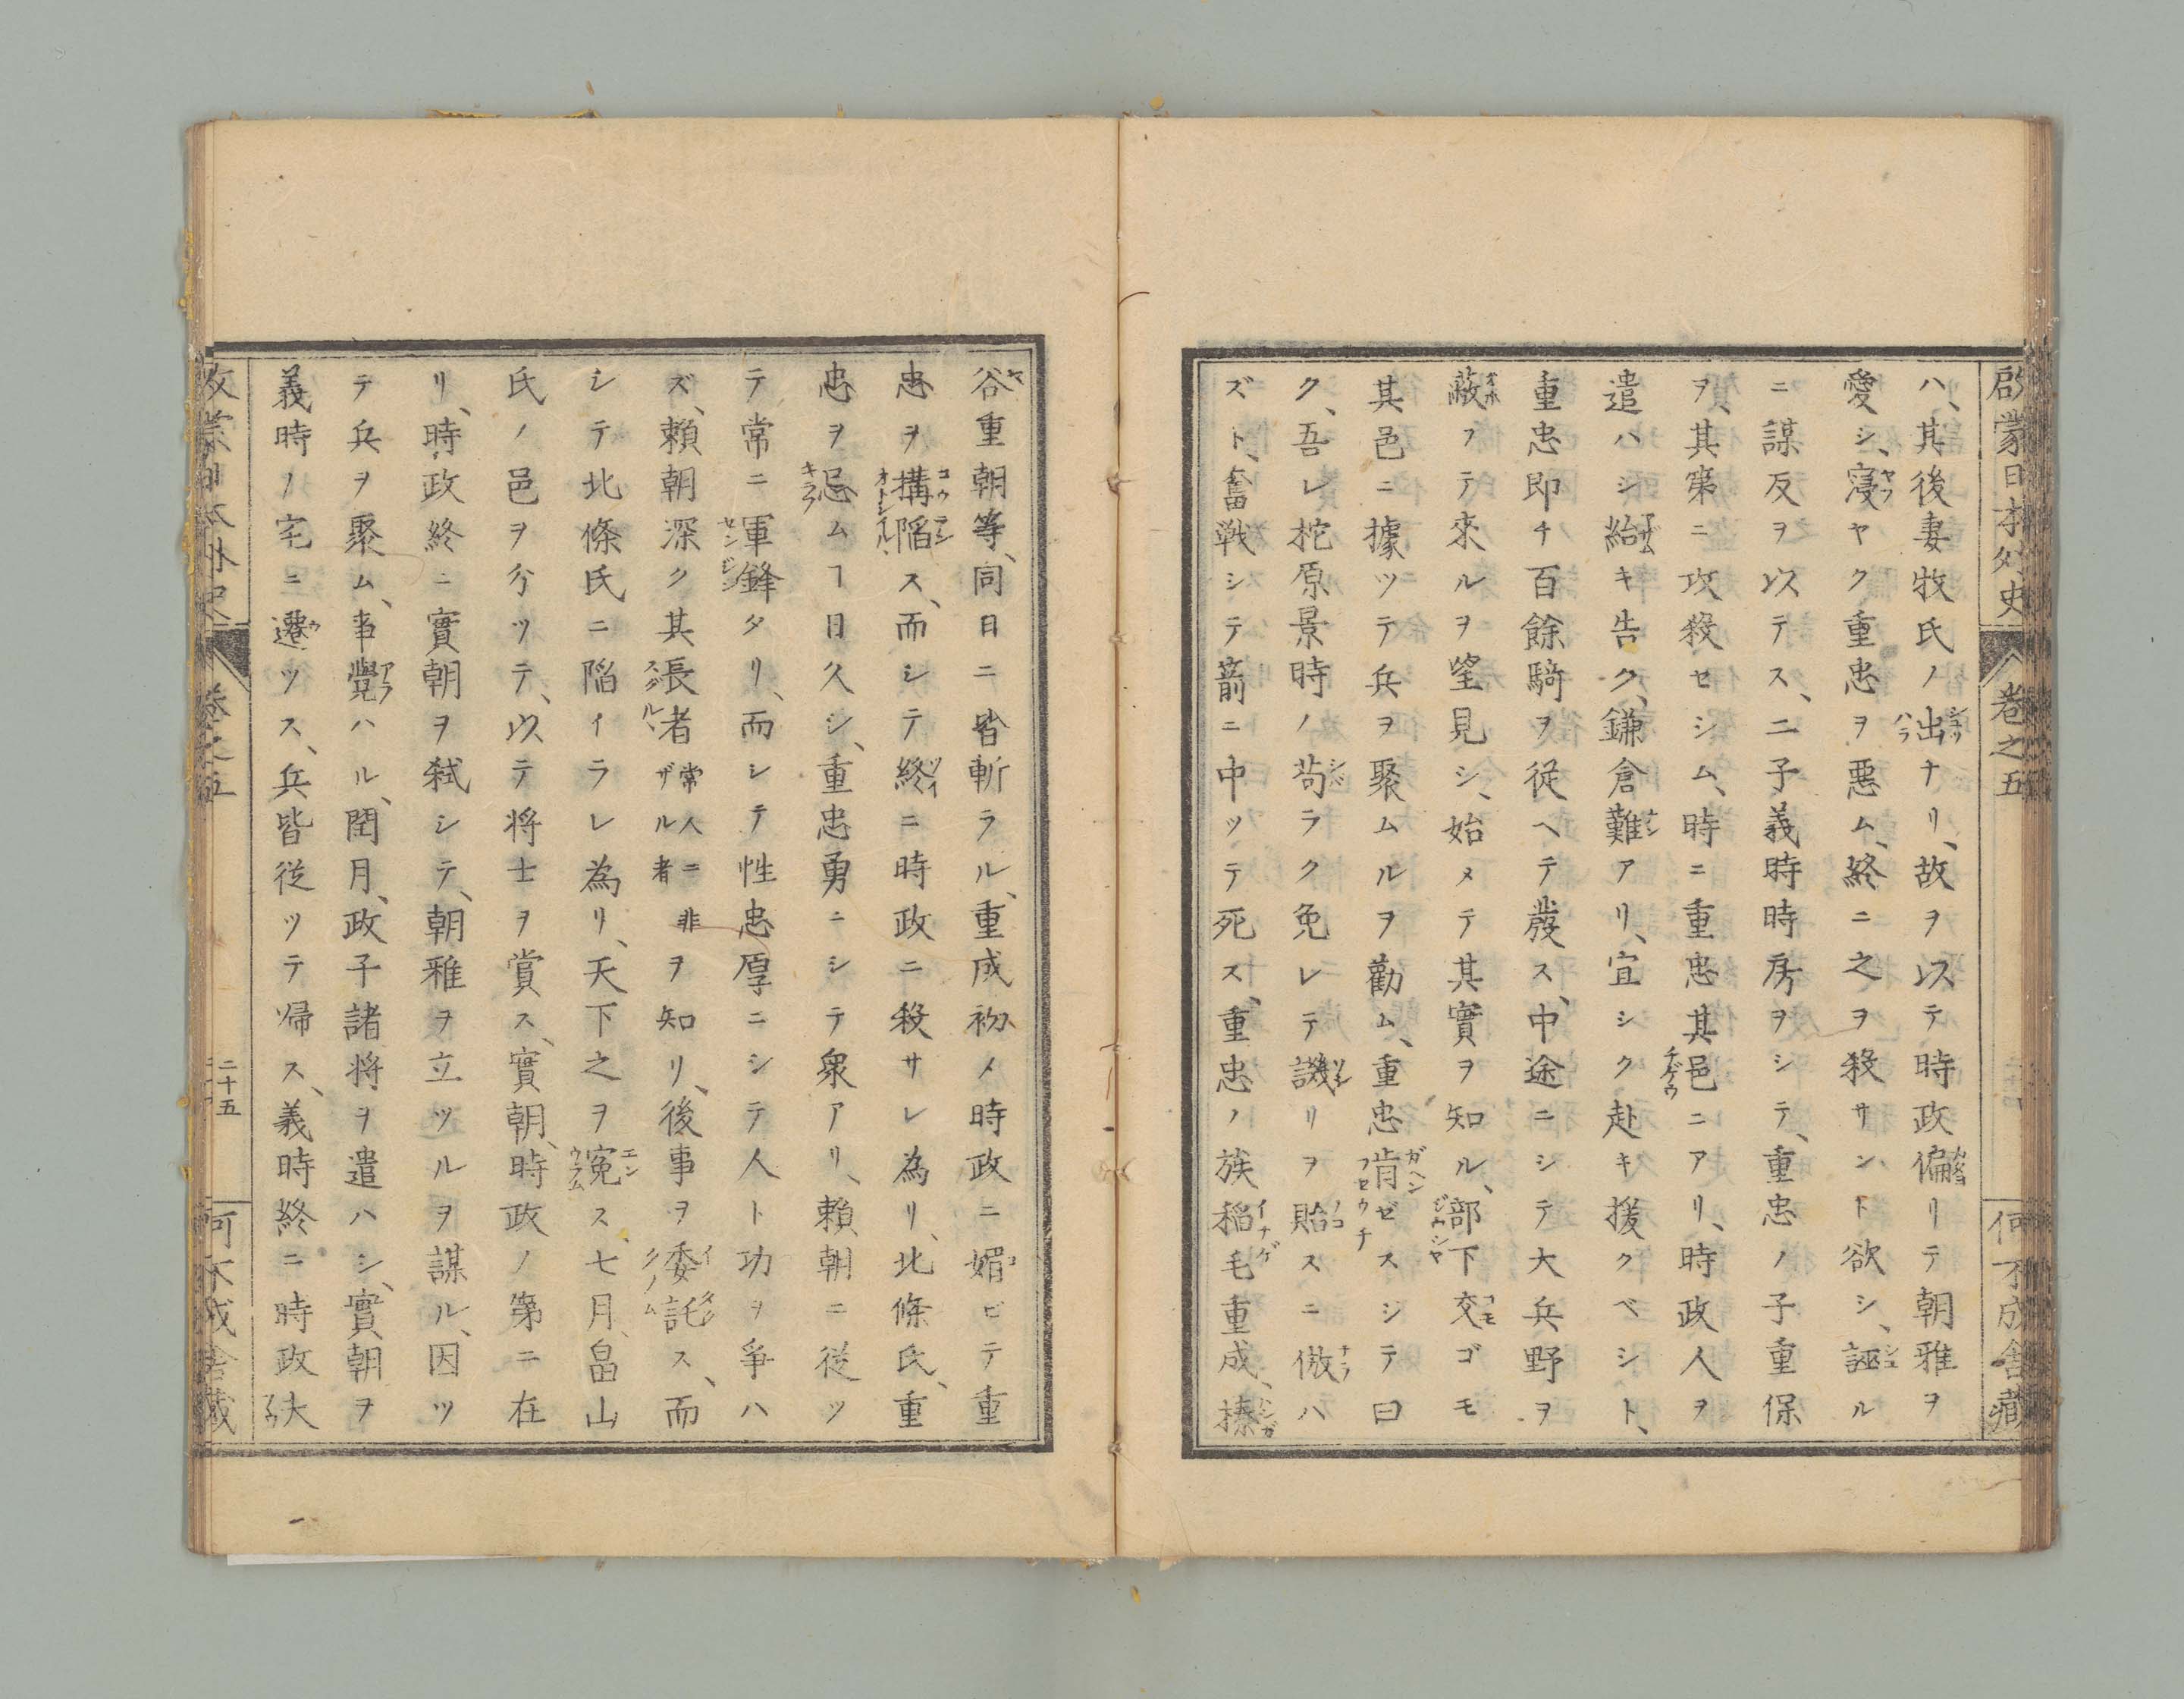 啓蒙日本外史 巻之五 何不成舎蔵
ハ、其後妻牧氏ノ出ナリ、故ヲ以テ時政偏リテ朝雅ヲ
愛シ、寖ヤク重忠ヲ悪ム、終ニ之ヲ殺サント欲シ、誣ル
ニ謀反ヲ以テス、二子義時時房ヲシテ、重忠ノ子重保
ヲ、其第ニ攻殺セシム、時ニ重忠其邑ニアリ、時政人ヲ
遣ハシ紿キ告ク、鎌倉難アリ、宜シク赴キ援クベシト、
重忠即チ百餘騎ヲ従ヘテ發ス、中途ニシテ大兵野ヲ
蔽フテ來ルヲ望見シ、始メテ其實ヲ知ル、部下交ゴモ
其邑ニ據ツテ兵ヲ聚ムルヲ勸ム、重忠肯ゼスシテ曰
ク、吾レ梶原景時ノ苟ラク免レテ譏リヲ貽スニ倣ハ
ズト、奮戦シテ箭ニ中ツテ死ス、重忠ノ族稲毛重成、榛
谷重朝等、同日ニ皆斬ラル、重成初メ時政ニ媚ビテ重
忠ヲ搆陥ス、而シテ終ニ時政ニ殺サレ為リ、北條氏、重
忠ヲ忌ムヿ日久シ、重忠勇ニシテ衆アリ、頼朝ニ従ツ
テ常ニ軍鋒タリ、而シテ性忠厚ニシテ人ト功ヲ爭ハ
ズ、頼朝深ク其長者常人ニ非ザル者ヲ知リ、後事ヲ委託ス、而
シテ北條氏ニ陥イラレ為リ、天下之ヲ寃ス、七月、畠山
氏ノ邑ヲ分ツテ、以テ将士ヲ賞ス、實朝、時政ノ第ニ在
リ、時政終ニ實朝ヲ弑シテ、朝雅ヲ立ツルヲ謀ル、因ツ
テ兵ヲ聚ム、事覺ハル、閏月、政子諸将ヲ遣ハシ、實朝ヲ
義時ノ宅ニ遷ツス、兵皆従ツテ帰ス、義時終ニ時政大
啓蒙日本外史 巻之五 二十五 何不成舎蔵